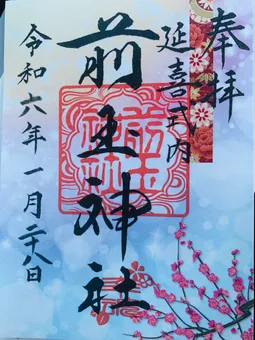 奉拝
延喜式内
前玉神社
令和六年一月二十八日
前玉
神社